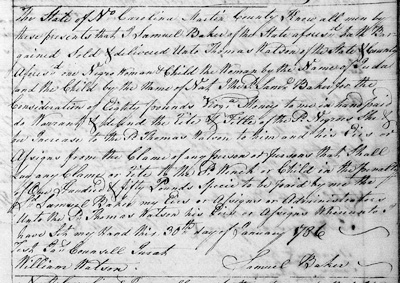 The State of No Carolina Martin County Know all men by
these presents that I Samuel Baker of the State aforesd hath Bar
gained Sold & delivered Unto Thomas Watson of the State & County
Aforesd one Negro Woman & Child the Woman by the Name of Juda
and the Child by the Name of Nat I the sd Saml Baker for the
Consideration of Eighty pounds Money to me in hand paid
do Warrant & defend the Title of the sd Negroes She &
her Increase to the sd Thomas Watson to him and his Eirs or
Assigns from the Clame of any person or persons that Shall
Lay any Clame or Title to the sd Wench or Child in the
of One Hundred & fifty Pounds Specie to be paid by me the
sd Samuel Baker my Eirs or Assigns or Administrators
Unto the sd Thomas Watson his Eirs or Assigns Whereunto I
have Set my Hand this 30th day of January 1786
Test Counsell Jurat
William Watson Samuel Baker